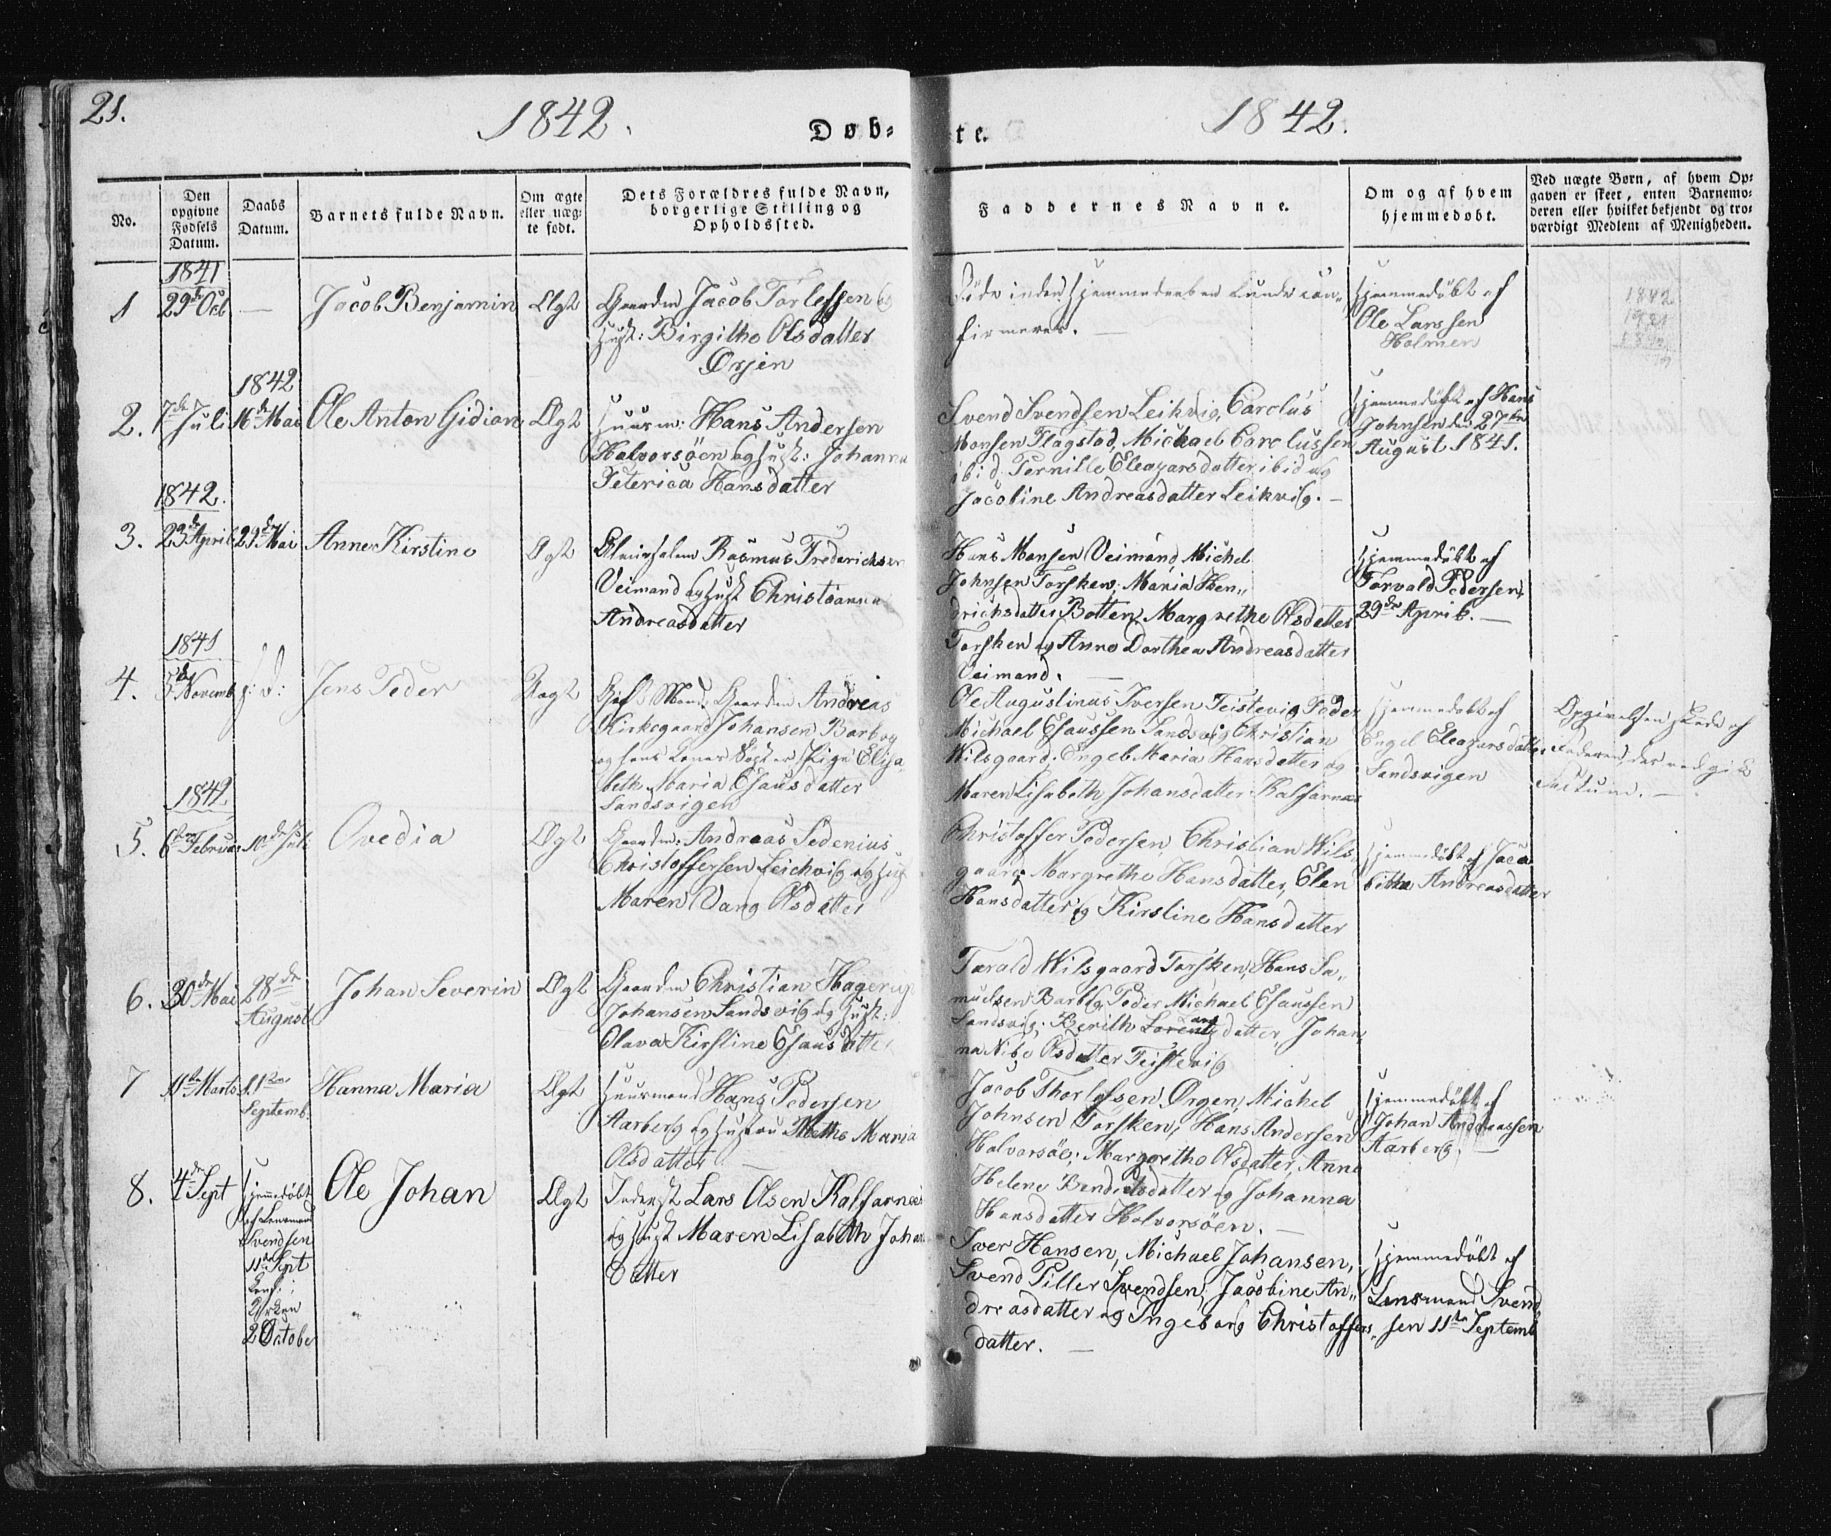 21.
1842.
Døb-
te.
1842.
No.
Den
opgivne
Fødsels
Datum.
Daabs
Datum.
Barnets fulde Navn.
Om ægte
eller uæg-
te født.
Dets Forældres fulde Navn,
borgerlige Stilling og
Opholdssted.
Faddernes Navne.
Om og af hvem
hjemmedøbt.
Ved uægte Børn, af hvem Op-
gaven er skeet, enten Barnemo-
deren eller hvilket bekjendt og tro-
værdigt Medlem af Menigheden.
1841
1
29de Oct
—
Jacob Benjamin
Ægt
Gaardm Jacob Torlefsen og
Hust: Birgithe Olsdatter
Ørjen
Døde inden Hjemmedaaben kunde con-
firmeres. —
Hjemmedøbt af
Ole Larssen
Holmen
1842
2.
7de Juli
16de Mai
Ole Anton Gidion
Ægt
Huusm: Hans Andersen
Halvorsöen og Hust: Johanna
Peterica Hansdatter
Svend Svendsen Leikvig, Carolus
Monsen Flagstad, Michael Carolussen
ibid. Pernille Eleazarsdatter ibid og
Jacobine Andreasdatter Leikvig. —
Hjemmedøbt af Hans
Johnsen den 27de
August 1841.
1842.
3.
23de April
29de Mai
Anne Kirstine
Ægt
Rasmus Frederichsen
Veimand og Hust Christianna
Andreasdatter
Hans Monsen Veimand, Michel
Johnsen Torsken, Maria Hen-
drichsdatter Botten, Margrethe Olsdatter
Torsken og Anne Dorthea Andreasdatter
Veimand.
Hjemmedøbt af
Torvald Pedersen
29de April. —
1841
4.
5de Novemb
Jens Peder
Uægt
Gift Mand, Gaardm Andreas
Kirkegaard Johansen Barbog
og hans Kones Søster Pige Elisa-
beth Maria Esausdatter
Sandsvigen
Ole Augustinus Iversen Teistevig, Peder
Michael Esaussen Sandsvig, Christian
Wilsgaard, Engel Maria Hansdatter og
Maren Lisabeth Johansdatter Kalfarnæs
Hjemmedøbt af
Engel Eleazarsdatter
Sandsvigen
Opgivelsen skede af
Faderen, der vedgik
Factum. —
1842
5.
6te Februar
10de Juli
Ovedia
Ægt
Gaardm: Andreas Sedenius
Christoffersen Leichvig og Hust
Maren Vang Olsdatter
Christoffer Pedersen, Christian Wils-
gaard, Margrethe Hansdatter, Elen
Hansdatter og Kirstine Hansdatter
Hjemmedøbt af Jaco-
bina Andreasdatter
6.
30de Mai
28de
August
Johan Severin
Ægt
Gaardm Christian Hagerup
Johansen Sandsvig og Hust:
Olava Kirstine Esausdatter
Torald Wilsgaard Torsken, Hans Sa-
muelsen Barbog, Peder Michael Esaussen
Sandsvig, Berith Lorentzdatter, Johan-
na Olsdatter Teistevig
7
11te Marts
11te
Septemb.
Hanna Maria
Ægt
Huusmand Hans Pedersen
Aarberg og Hustru Methe Maria
Olsdatter —
Jacob Thorlefsen Ørgen, Michel
Johnsen Torsken, Hans Andersen
Halvorsöe, Margrethe Olsdatter, Anne
Helene Bendicksdatter og Johanna
Hansdatter Halvorsöen. —
Hjemmedøbt af
Johan Andreassen
Aarberg. —
8.
4de Sept
Hjemmedøbt
af Lensmand
Svendsen
11te Sept
Conf. i
Kirken
2 Octobe
Ole Johan
Ægt
Lars Olsen Kalfarnæs
og Hust Maren Lisabeth Johans
Datter
Iver Hansen, Michael Johansen,
Svend Piller Svendsen, Jacobine An-
dreasdatter og Ingeborg Christoffers-
datter. —
Hjemmedøbt af
Lensmand Svend-
sen 11te Septemb